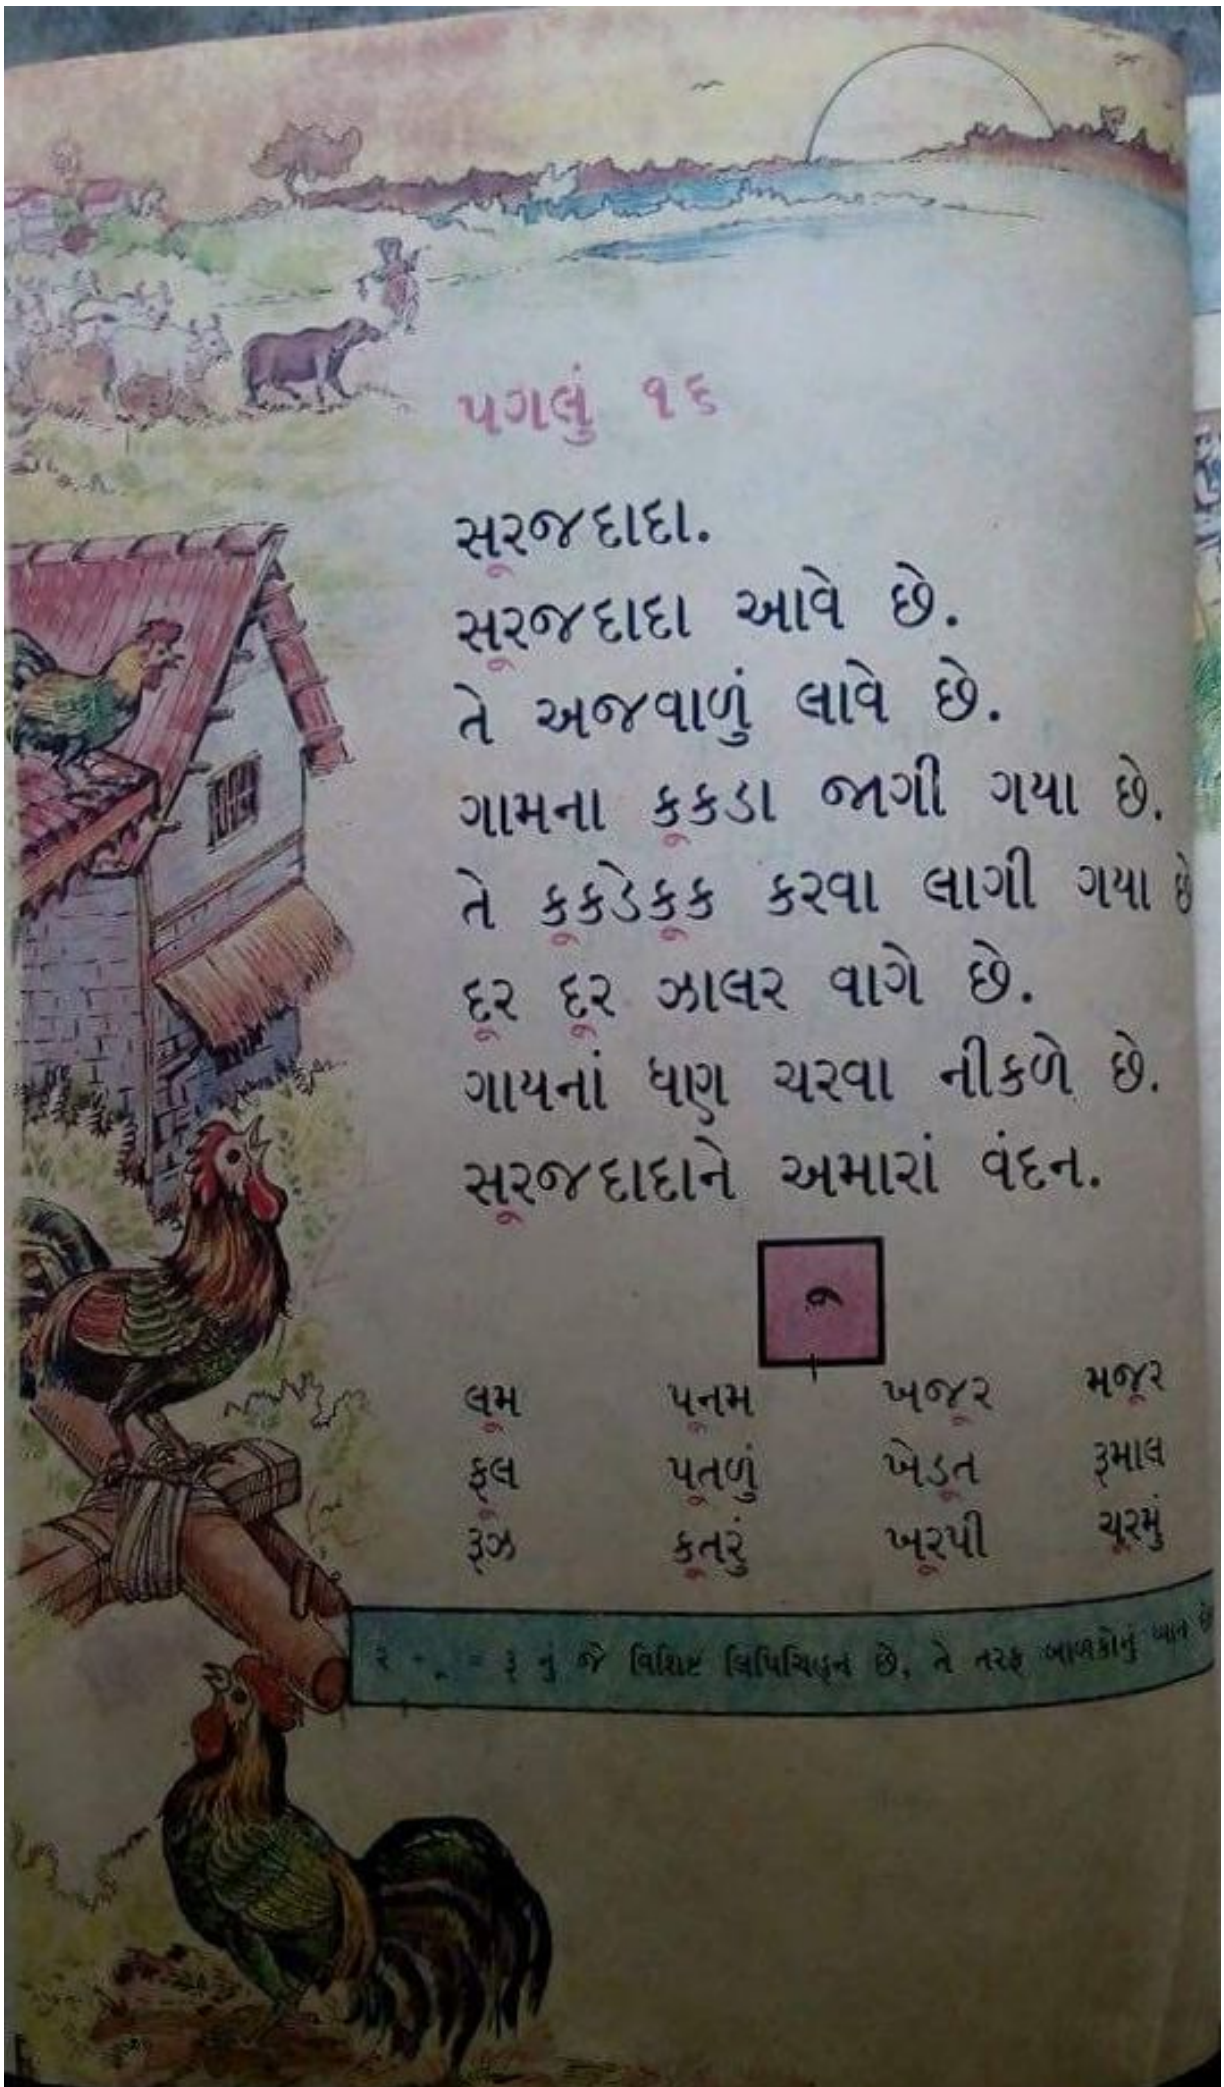 પગલું ૧૬
સૂરજદાદા.
સૂરજદાદા આવે છે.
તે અજવાળું લાવે છે.
ગામના કૂકડા જાગી ગયા છે.
તે કૂકડેકૂક કરવા લાગી ગયા છે
દૂર દૂર ઝાલર વાગે છે.
ગાયનાં ધણ ચરવા નીકળે છે.
સૂરજદાદાને અમારાં વંદન.
ૂ
લૂમ પૂનમ ખજૂર મજૂર
ફૂલ પૂતળું ખેડૂત રૂમાલ
રૂઝ કૂતરું ખૂરપી ચૂરમું
ર + ૂ = રૂ નું જે વિશિષ્ટ લિપિચિહ્ન છે, તે તરફ બાળકોનું ધ્યાન